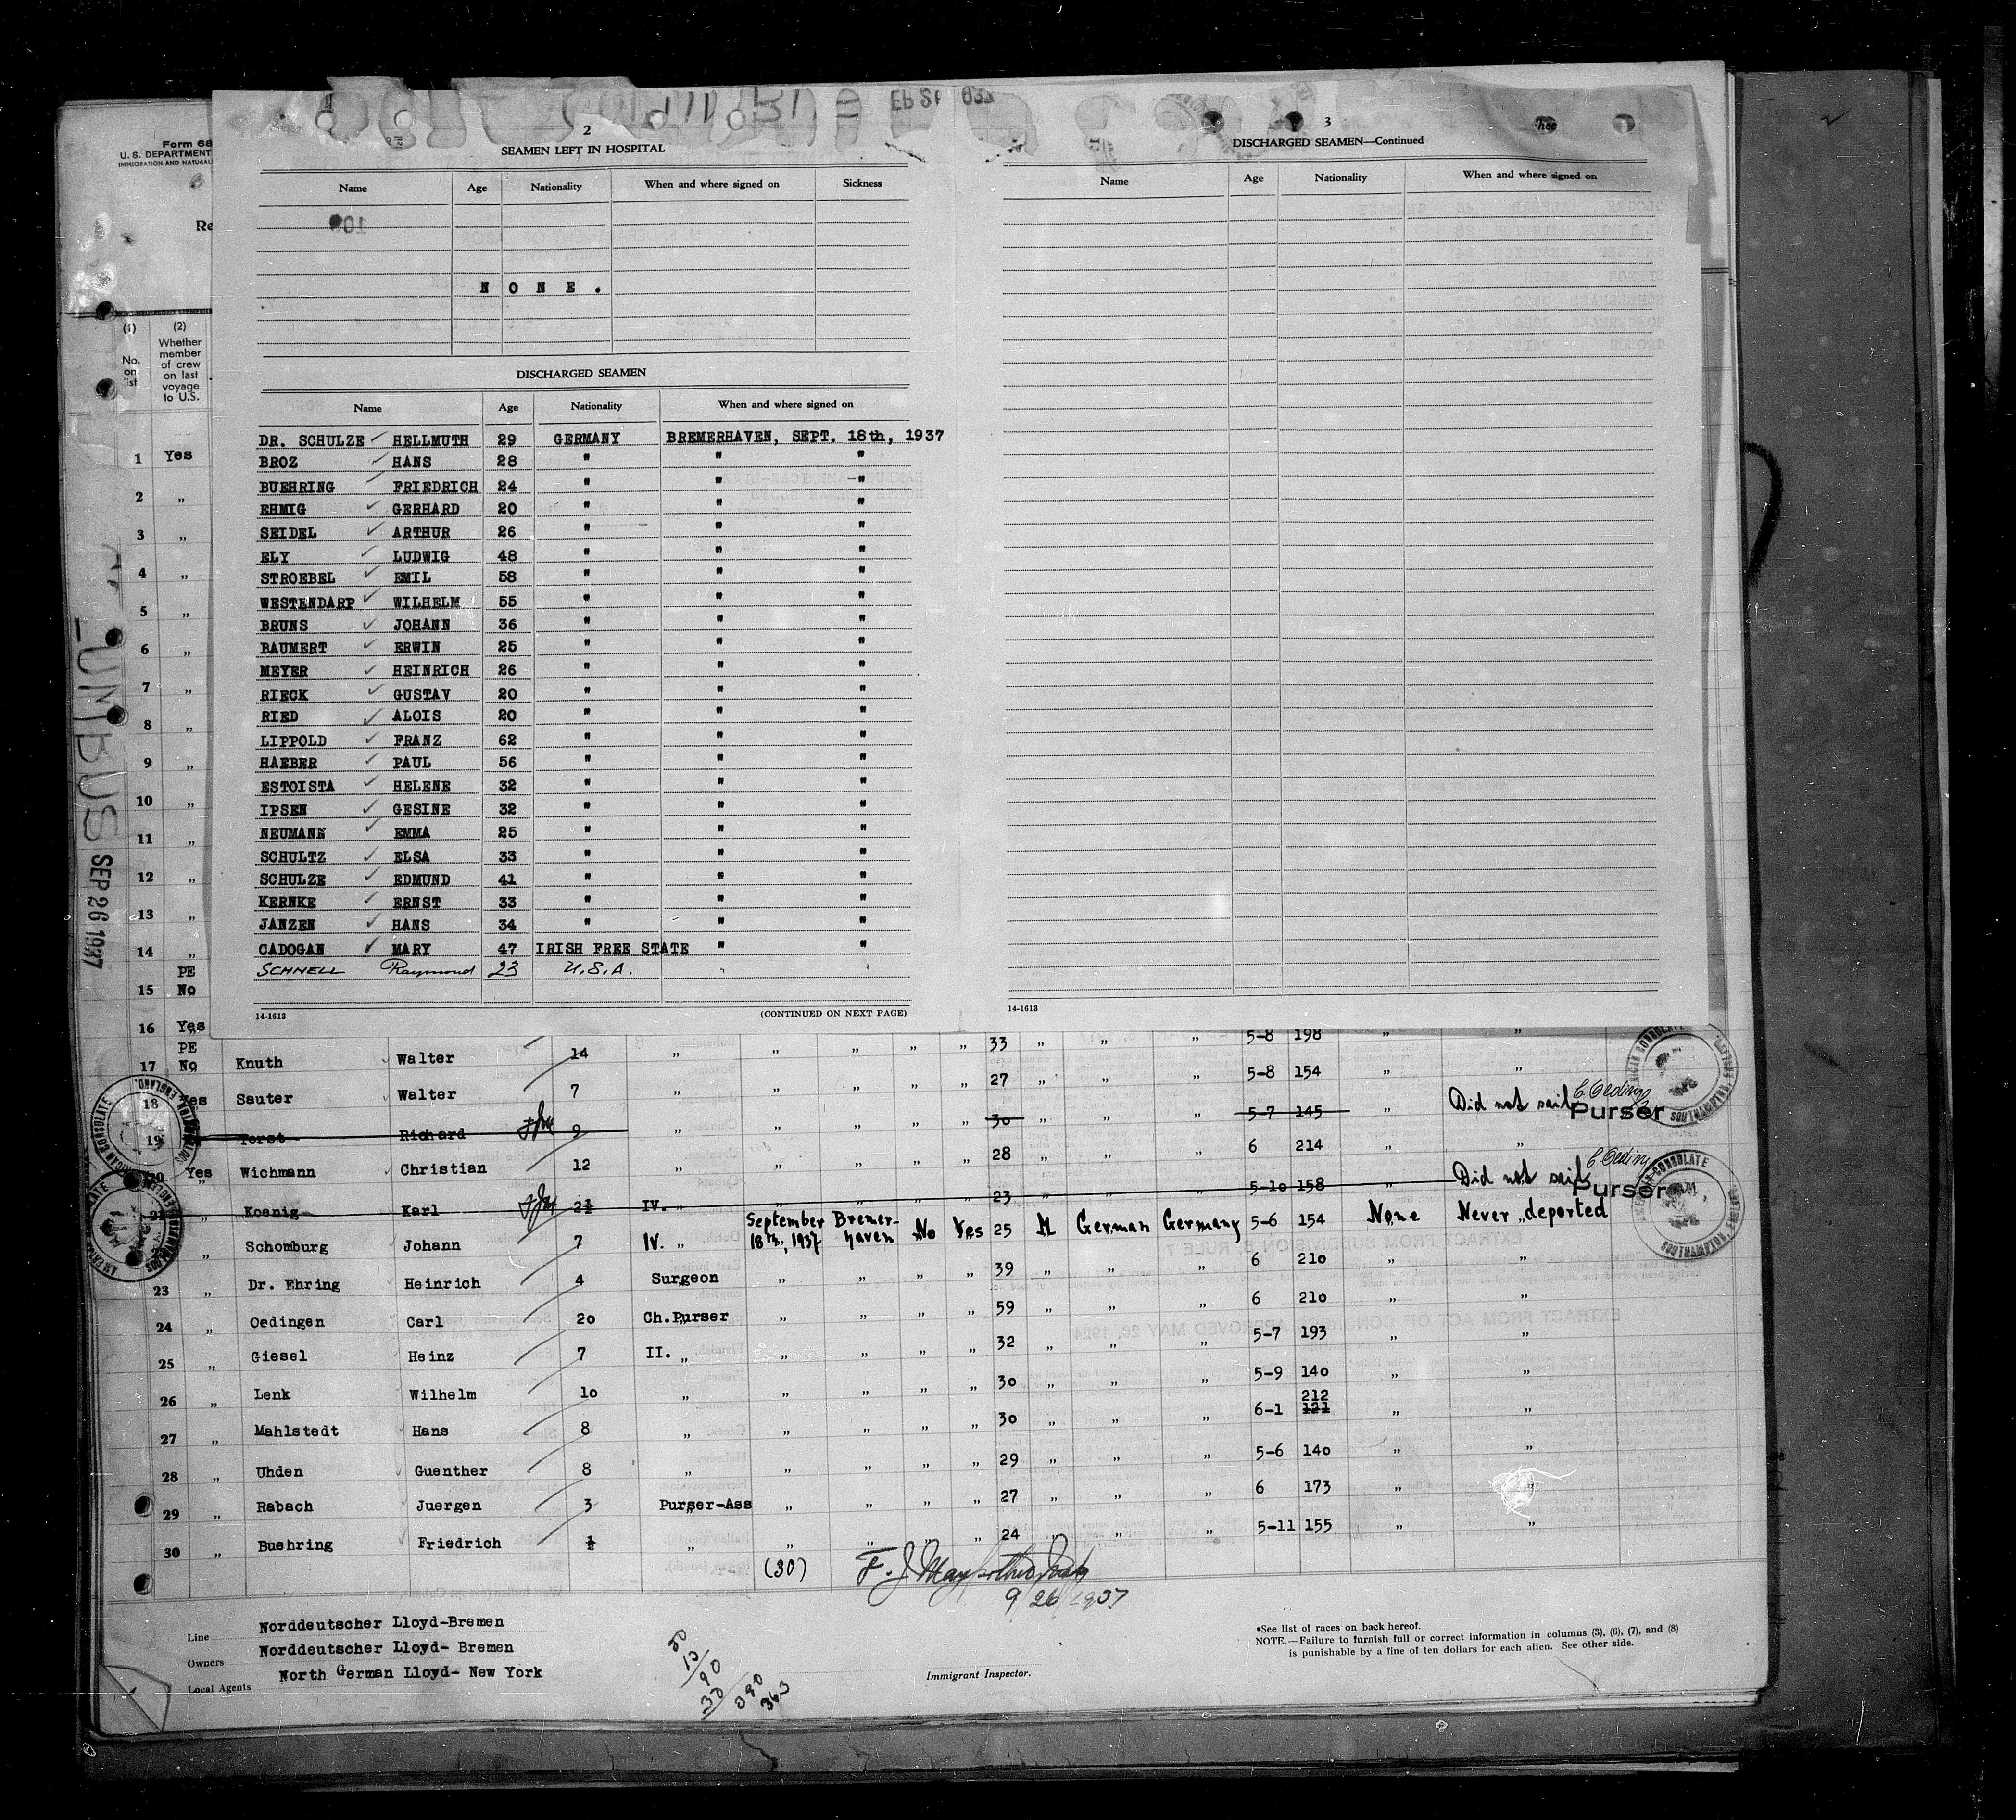 Form 68
U. S. DEPARTMENT
IMMIGRATION AND NATURAL
Re
(1)
No. on list
(2)
Whether member of crew on last voyage to U.S.
2
SEAMEN LEFT IN HOSPITAL
Name Age Nationality When and where signed on Sickness
NONE.
DISCHARGED SEAMEN
Name Age Nationality When and where signed on
DR. SCHULZE HELLMUTH 29 GERMANY BREMERHAVEN, SEPT. 18th, 1937
BROZ HANS 28 " " "
BUEHRING FRIEDRICH 24 " " "
EHMIG GERHARD 20 " " "
SEIDEL ARTHUR 26 " " "
ELY LUDWIG 48 " " "
STROEBEL EMIL 58 " " "
WESTENDARP WILHELM 55 " " "
BRUNS JOHANN 36 " " "
BAUMERT ERWIN 25 " " "
MEYER HEINRICH 26 " " "
RIECK GUSTAV 20 " " "
RIED ALOIS 20 " " "
LIPPOLD FRANZ 62 " " "
HAEBER PAUL 56 " " "
ESTOISTA HELENE 32 " " "
IPSEN GESINE 32 " " "
NEUMANN EMMA 25 " " "
SCHULTZ ELSA 33 " " "
SCHULZE EDMUND 41 " " "
KERNKE ERNST 33 " " "
JANZEN HANS 34 " " "
CADOGAN MARY 47 IRISH FREE STATE " "
SCHNELL Raymond 23 U.S.A. " "
14-1613 (CONTINUED ON NEXT PAGE)
3
DISCHARGED SEAMEN—Continued
Name Age Nationality When and where signed on
14-1613
UMBUS SEP 26 1937
1 Yes
2 "
3 "
4 "
5 "
6 "
7 "
8 "
9 "
10 "
11 "
12 "
13 "
14 "
PE
15 No
16 Yes 5-8 198 " "
PE
17 No Knuth Walter 14 " " " " " 33 " " " 5-8 154 " "
18 Yes Sauter Walter 7 " " " " " 27 " " "
19 Torst Richard 9 " 30 " " " 5-7 145 " Did not sail Purser
20 Yes Wichmann Christian 12 " " " " " 28 " " " 6 214 " "
21 " Koenig Karl 2½ IV. " " " " " 23 " " " 5-10 158 " Did not sail Purser
22 " Schomburg Johann 7 IV. " September 18th, 1937 Bremerhaven No Yes 25 M German Germany 5-6 154 None Never deported
23 " Dr. Ehring Heinrich 4 Surgeon " " " " 39 " " " 6 210 " "
24 " Oedingen Carl 20 Ch.Purser " " " " 59 " " " 6 210 " "
25 " Giesel Heinz 7 II. " " " " " 32 " " " 5-7 193 " "
26 " Lenk Wilhelm 10 " " " " " 30 " " " 5-9 140 " "
27 " Mahlstedt Hans 8 " " " " " 30 " " " 6-1 121 212 " "
28 " Uhden Guenther 8 " " " " " 29 " " " 5-6 140 " "
29 " Rabach Juergen 3 Purser-Ass " " " " 27 " " " 6 173 " "
30 " Buehring Friedrich ½ " " " " " 24 " " " 5-11 155 " "
(30)
9/26/1937
Line Norddeutscher Lloyd-Bremen
Owners Norddeutscher Lloyd- Bremen
Local Agents North German Lloyd- New York
Immigrant Inspector.
*See list of races on back hereof.
NOTE.—Failure to furnish full or correct information in columns (3), (6), (7), and (8)
is punishable by a fine of ten dollars for each alien. See other side.